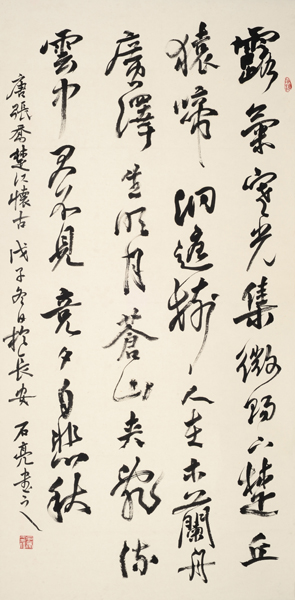 露氣寒光集微陽下楚丘
猿啼洞庭樹人在木蘭舟
廣澤生明月蒼山夾亂流
雲中君不見竟夕自悲秋
唐張喬楚江懷古 戊子冬日於長安 石亮書之